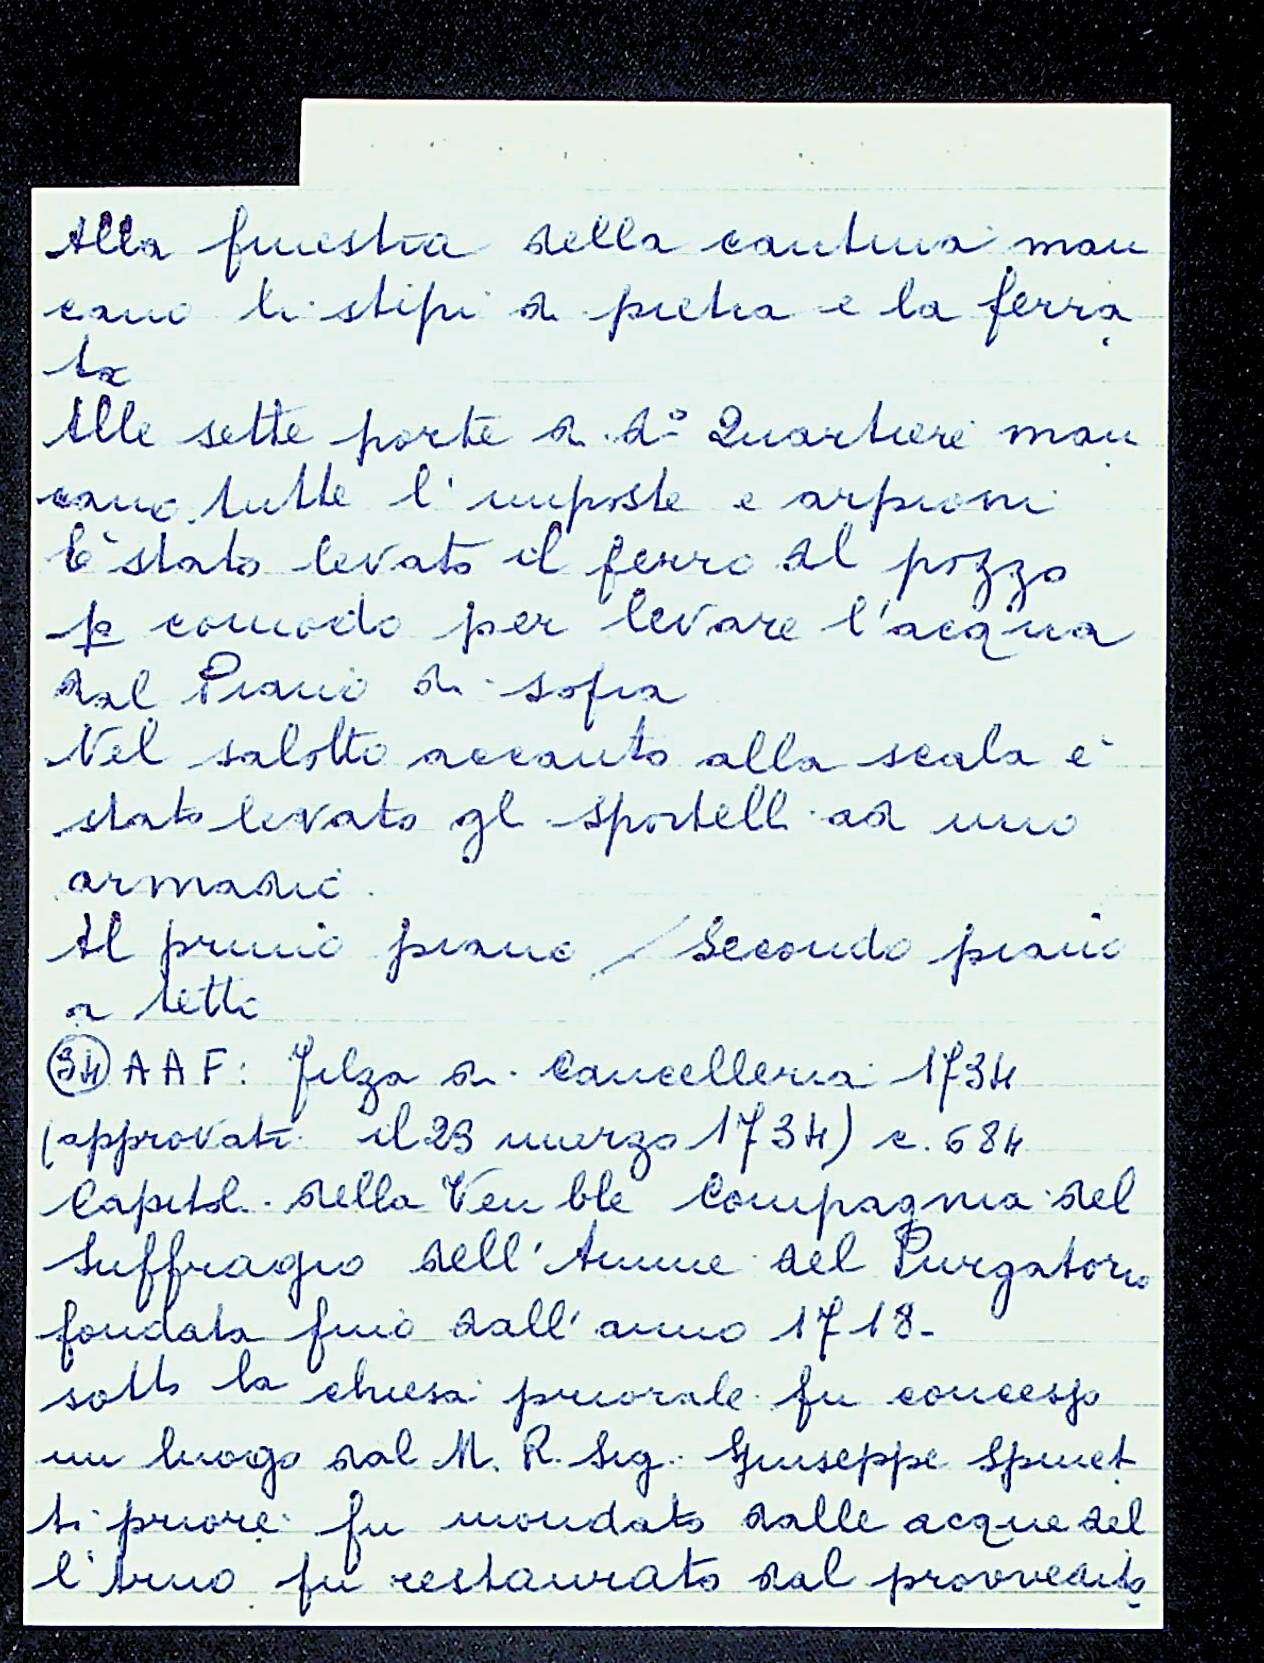 Alla finestra della cantina man
cano li stipi di pietra e la ferra
ta
Alle sette porte di do Quartiere man
cano tutte l'imposte e arpioni
E' stato levato il ferro al pozzo
p comodo per levare l'acqua
dal Piano di sofra
Nel salotto accanto alla scala e'
stato levato gli sportelli ad uno
armadio.
Al primo piano / Secondo piano
a tetti
(34) A A F: Filza di Cancelleria 1734
(approvati il 23 marzo 1734) c. 684
Capitoli della Ven ble Compagnia del
Suffragio dell'Anime del Purgatorio
fondata fino dall'anno 1718-
sotto la chiesa priorale fu concesso
un luogo dal M. R. Sig. Giuseppe Spinet
ti priore fu inondato dalle acque del
l'Arno fu restaurato dal provvedito